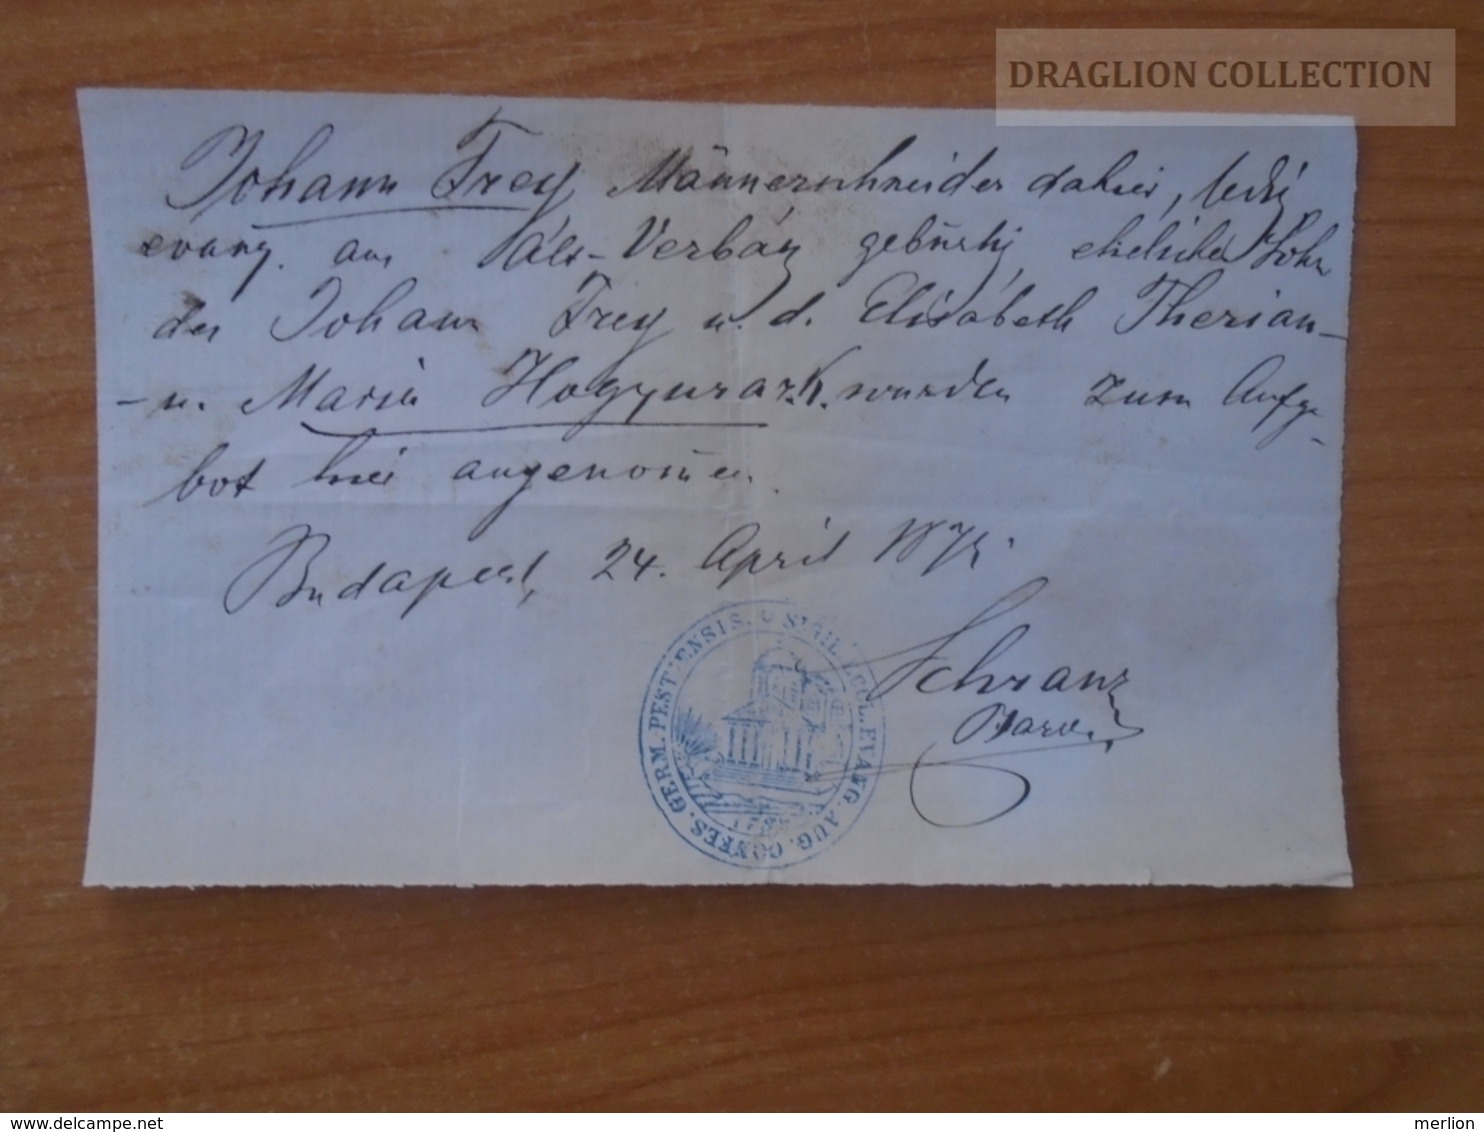 DRAGLION COLLECTION
Johann Frey Männerschneider dahier, ledig
evang. aus Als-Verbász gebürtig, ehelicher Sohn
des Johann Frey u. d. Elisabeth Therian
- u. Maria Hogyurazk. wurden zum Aufge-
bot hier angenom̅en.
Budapest, 24. April
Schranz
SIGIL. ECCL. EVANG. AUG. CONFES. GERM. PESTIENSIS.
merlion
delcampe.net